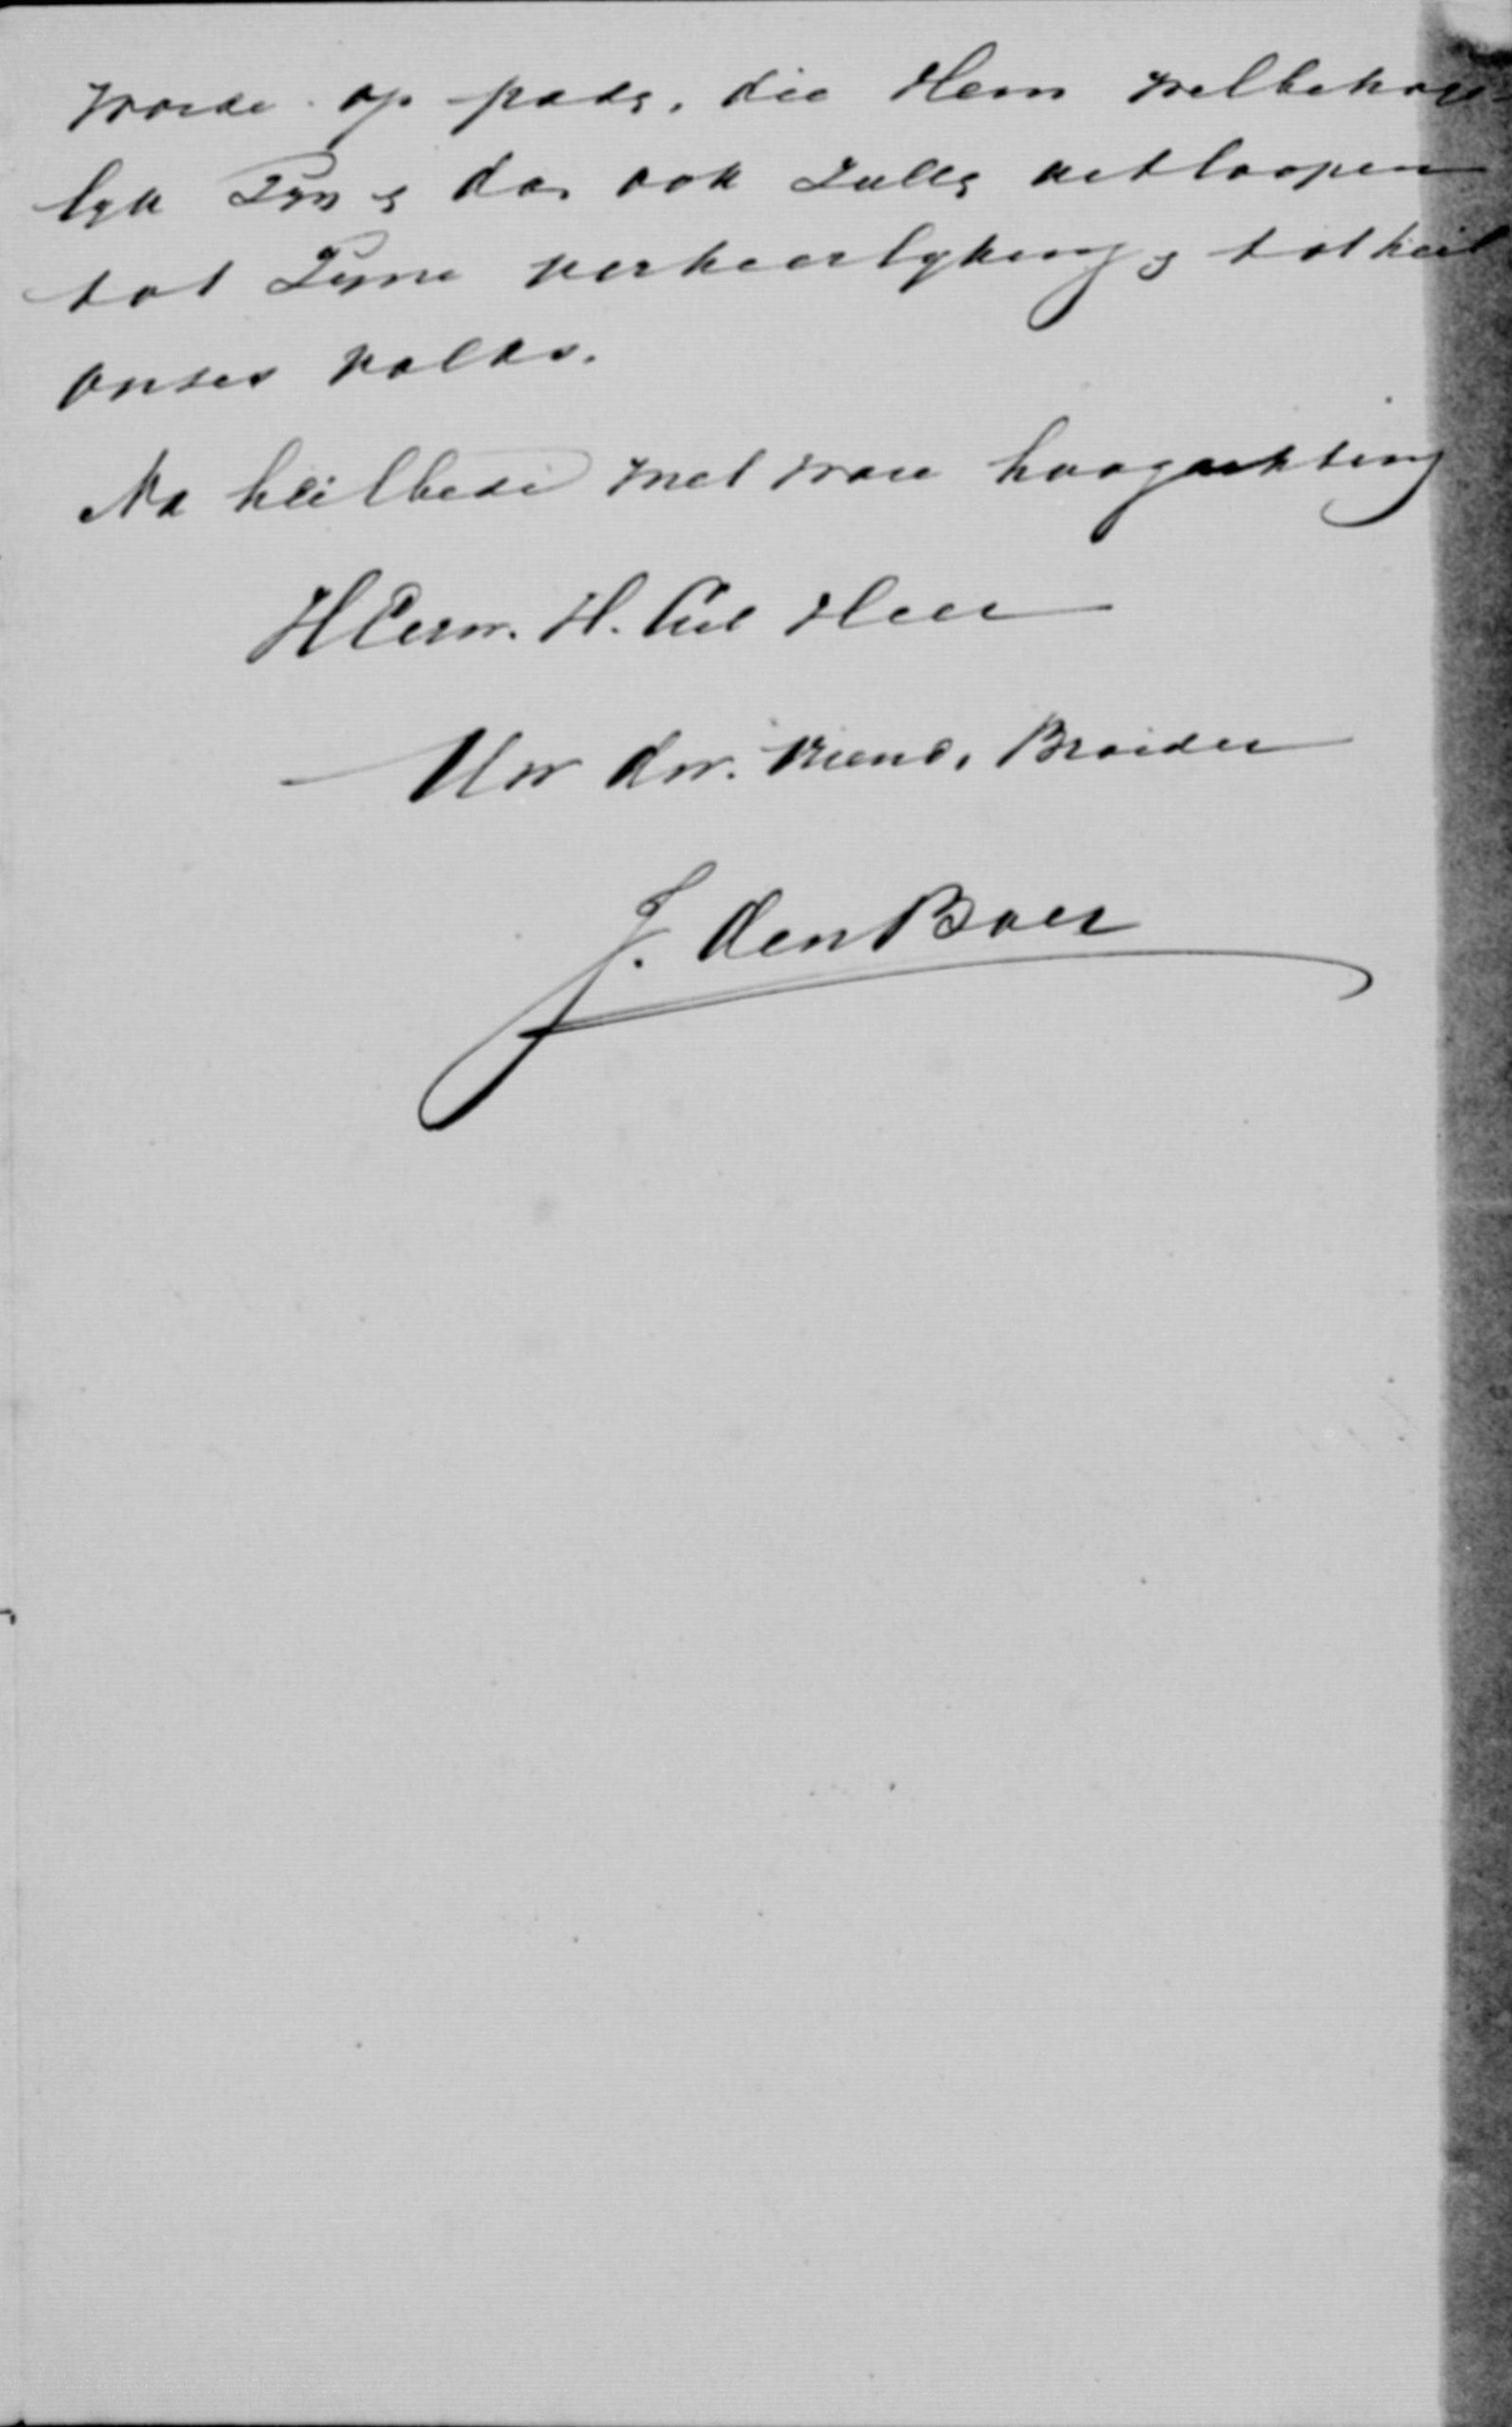 worde op pade, die Hem welbehage-
lyk zyn & dan ook zulle uitloopen
tot Zyne verheerlyking & tot heil
onzes volks.
Na heilbede met ware hoogachting
HEerw. H. Gel Heer
Uw dw. vriend, Broeder
J. den Boer